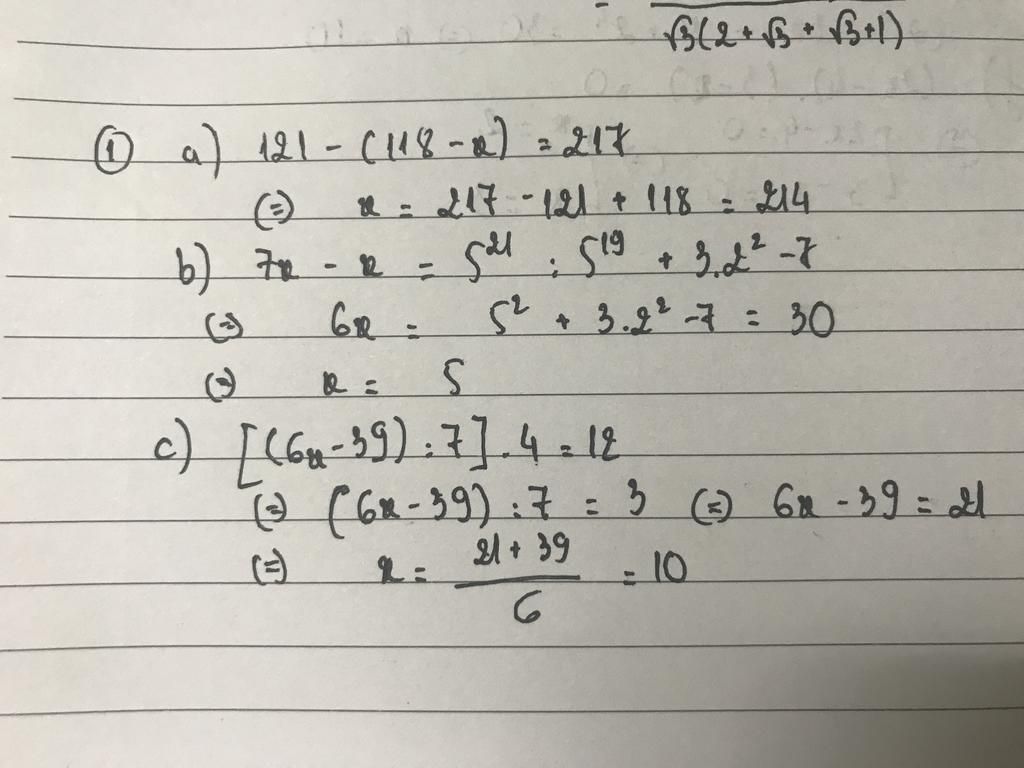 √3(2 + √3 + √3+1)
① a) 121 - (118 - x) = 217
(=) x = 217 - 121 + 118 = 214
b) 7x - x = 5²¹ : 5¹⁹ + 3.2² - 7
(=) 6x = 5² + 3.2² - 7 = 30
(=) x = 5
c) [(6x - 39) : 7] . 4 = 12
(=) (6x - 39) : 7 = 3 (=) 6x - 39 = 21
(=) x = (21 + 39)/6 = 10